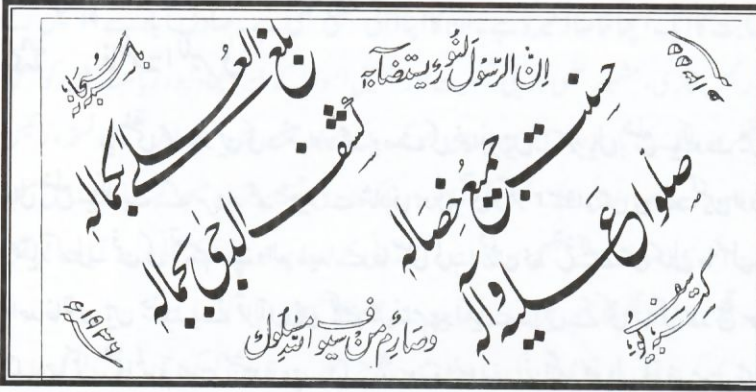 باسمہ سبحانہ
ان الرسول لنور يستضآء به
بلغ العلى بكماله
كشف الدجى بجماله
حسنت جميع خصاله
صلوا عليه وآله
وصارم من سيوف الله مسلول
۱۹۳۶ء